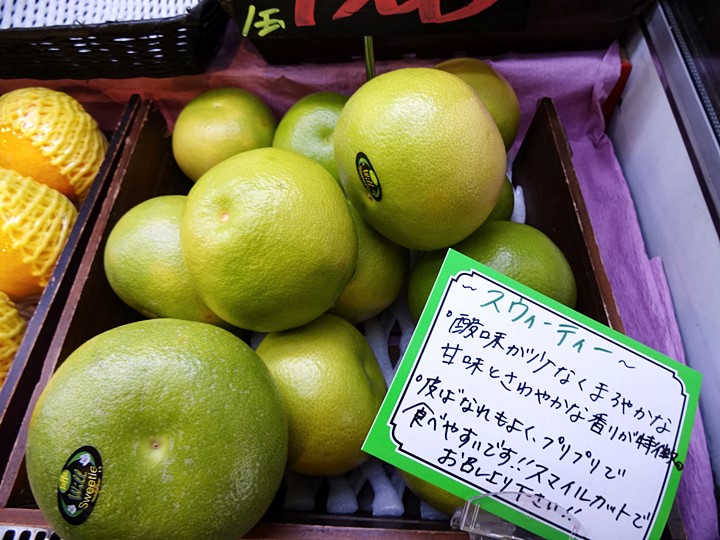 1玉
～スウィーティー～
・酸味が少なくまろやかな
甘味とさわやかな香りが特徴。
・皮ばなれもよく、プリプリで
食べやすいです!!スマイルカットで
お召し上り下さい!!
Will
Sweetie